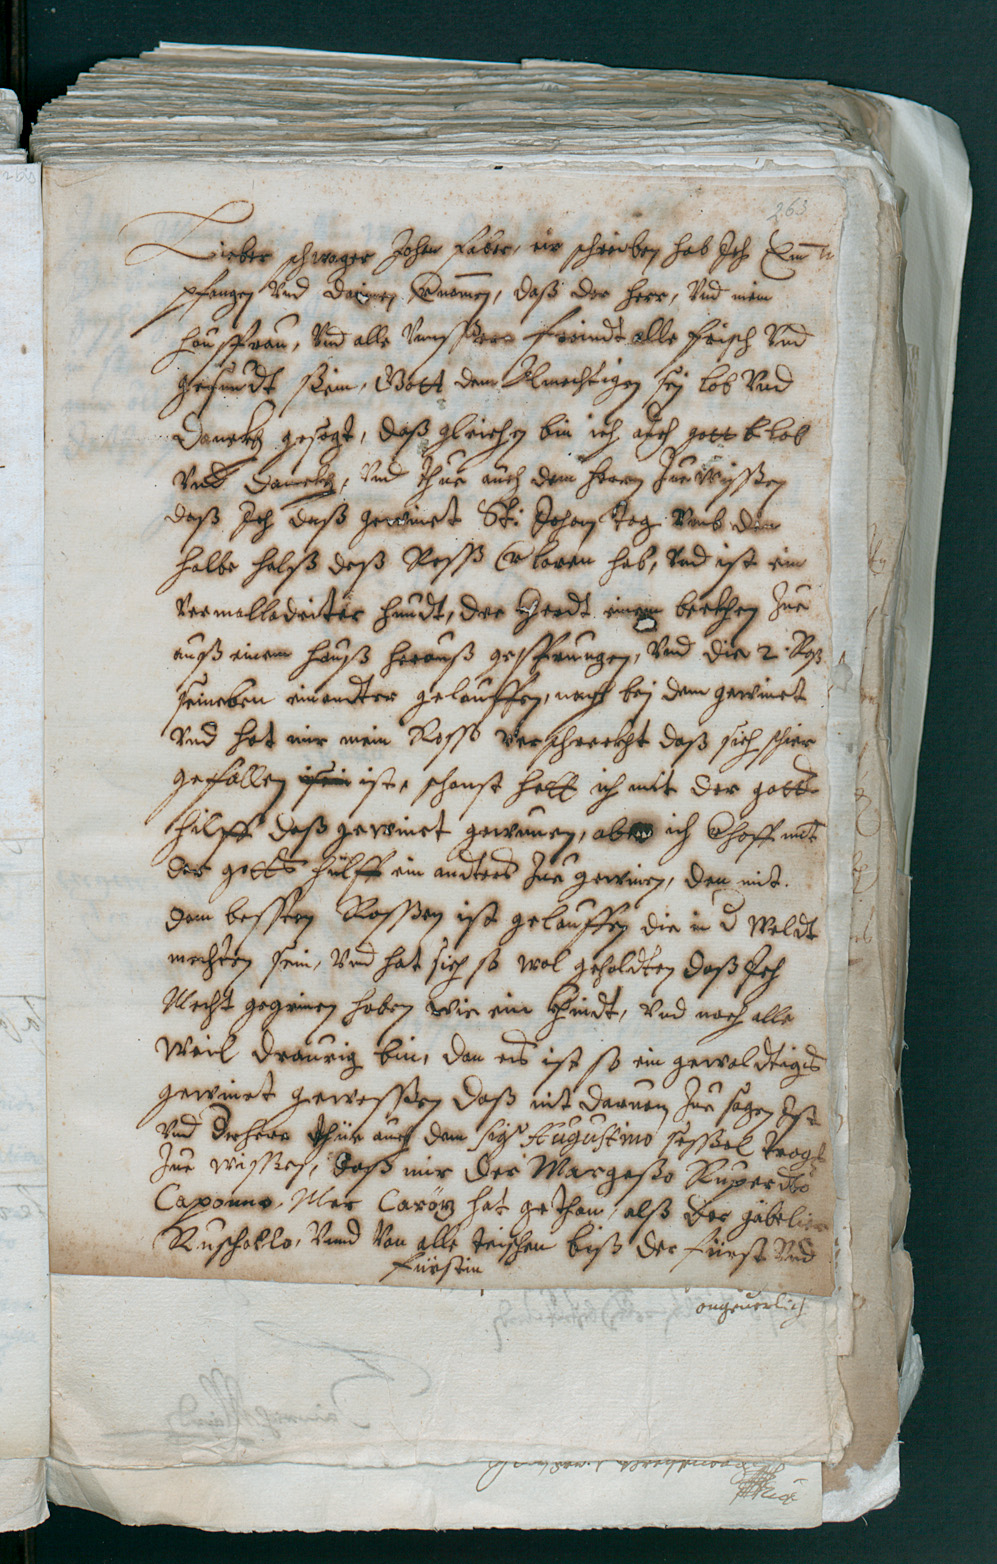 263
Lieber schwager Johan Faber, eir schreiben hab Jch Em
pfangen Vnd darinen Vernomen, daß der herr, Vnd mein
haußfrau, Vnd alle Vnnßere freindt alle frisch Vnd
gesundt sein, Gott dem Almechtigen sej lob Vnd
Danckh gesagt, daß gleichen bin ich auch gott lob
Vnd danckh, Vnd thue auch dem herrn Zue wissen
daß Jch daß gewinet St: Johan tag Vmb den
halbe halß deß Roß Verloren hab, Vnd ist ein
Vermalledeiter hundt, der einem becken Zue
auß einem hauß herauß gesprungen, Vnd die 2 Roß
seineben einandter gelauffen, nach bej dem gewinet
Vnd hat mir mein Ross verschreckht daß sich schier
gefallen ist, schonst hett ich mit der gotts
hilff daß gewinet gewunen, aber ich Verhoff mit
der gotts hülff ein andters Zue gewinen, den mit
dem bessten Rossen ist gelauffen die in d Weldt
mechten sein, Vnd hat sich so wol gehaldten daß Jch
Mecht gegrinen haben wie ein khindt, Vnd noch alle
Weil draurig bin, dan eß ist so ein gewaldtigs
gewinet gewessen daß nit daruon Zue sagen Jst
Vnd der herr thue auch dem Sigr Augustino sessel trager
Zue wissen, daß mir der Margeßo Ruperdto
Caponno, Mer Carötz hat gethan, alß der gabelier
Ruschallo, Vnnd Von alle teischen biß der fürst Vnd
fürstin
ongeuerlich